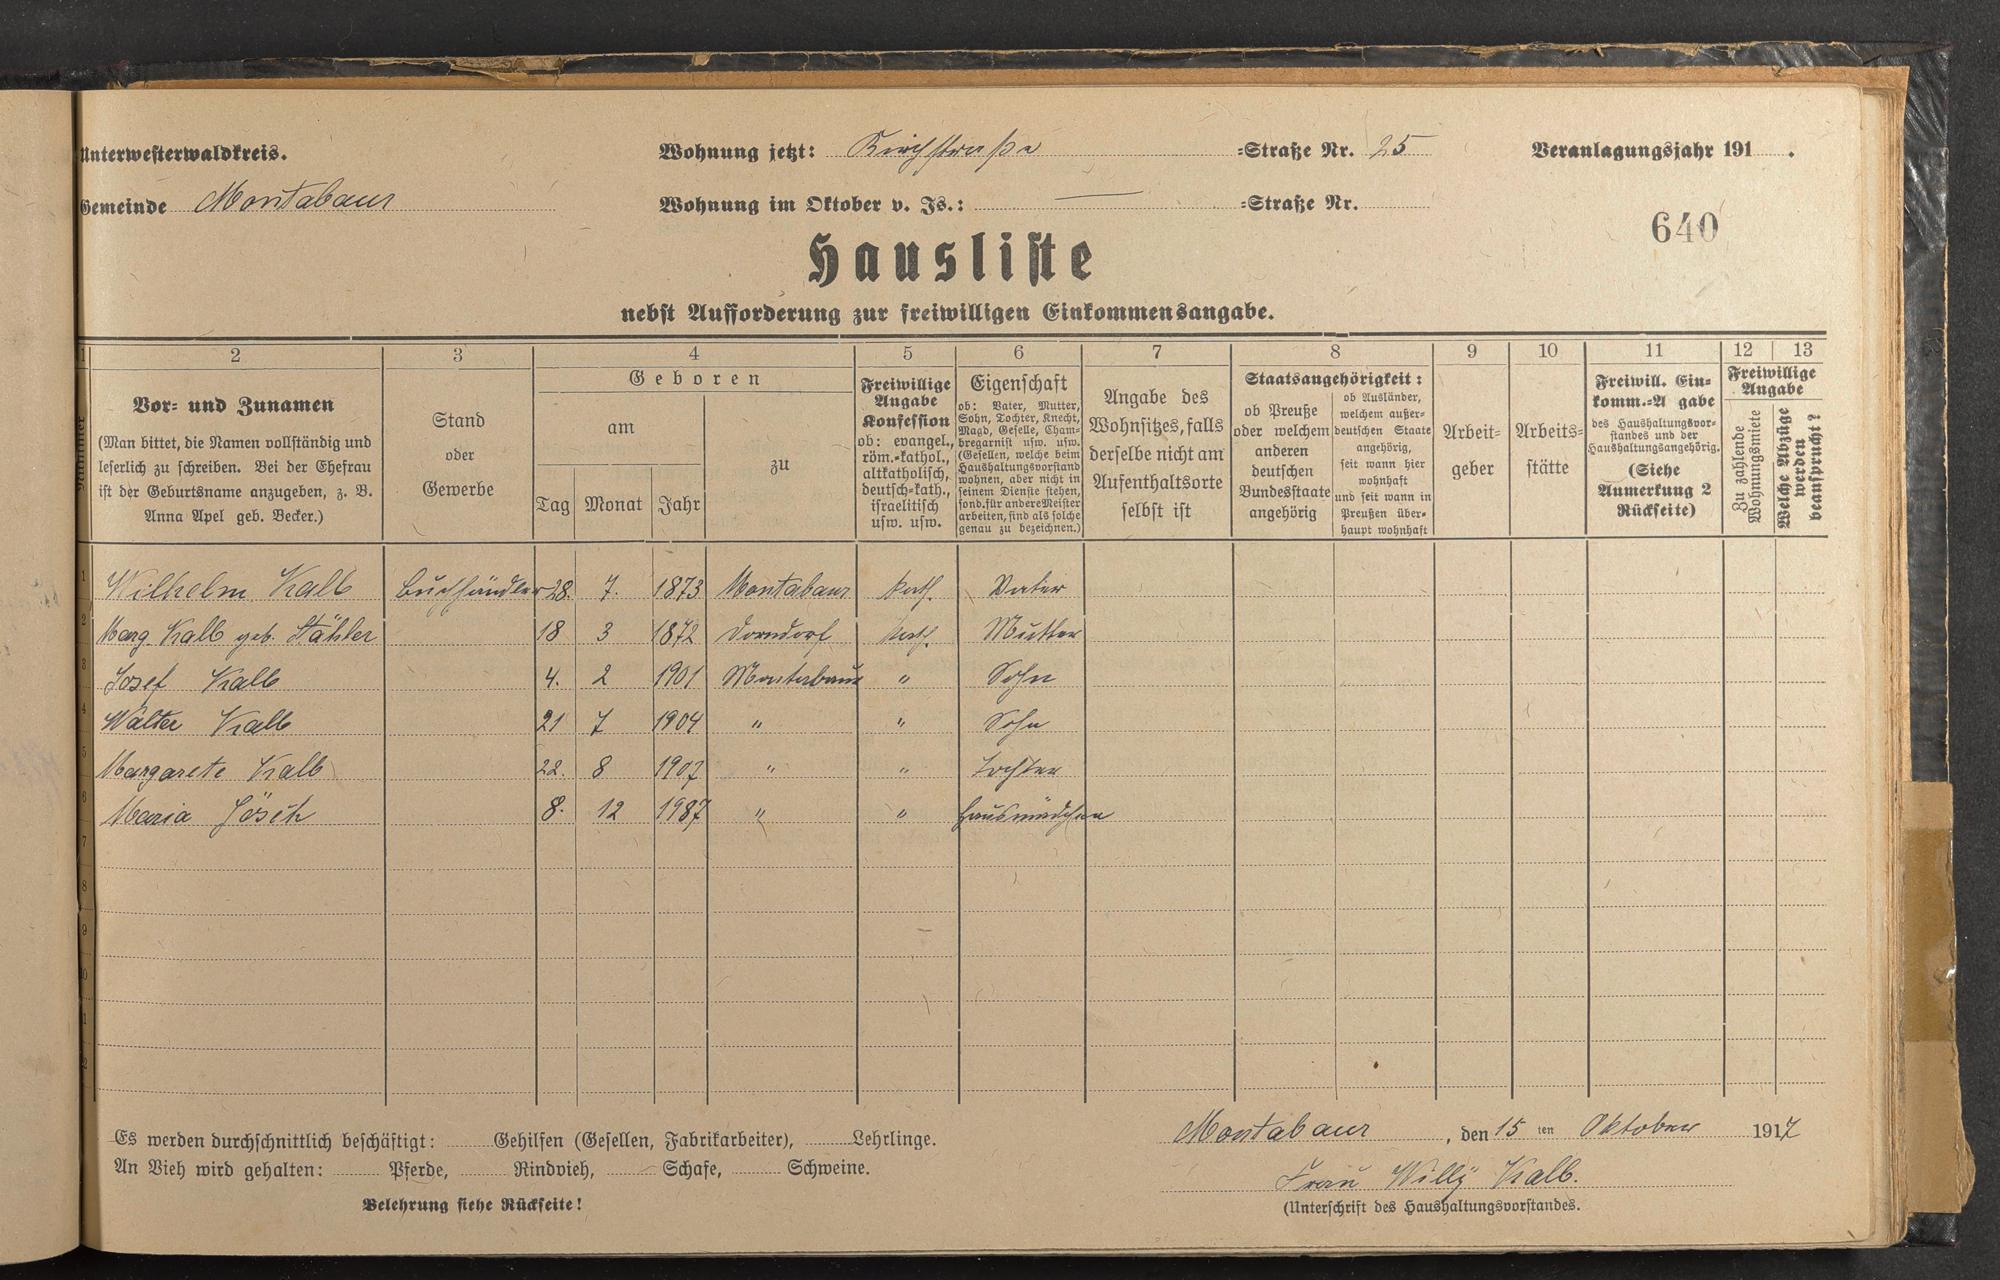 Unterwesterwaldkreis.
Wohnung jetzt: Kirchstraße =Straße Nr. 25
Veranlagungsjahr 191 .
Gemeinde Montabaur
Wohnung im Oktober v. Js.: — =Straße Nr.
640
Hausliste
nebst Aufforderung zur freiwilligen Einkommensangabe.
1 2 3 4 5 6 7 8 9 10 11 12 13
Nummer
Vor- und Zunamen
(Man bittet, die Namen vollständig und
leserlich zu schreiben. Bei der Ehefrau
ist der Geburtsname anzugeben, z. B.
Anna Apel geb. Becker.)
Stand
oder
Gewerbe
Geboren
am
Tag Monat Jahr
zu
Freiwillige
Angabe
Konfession
ob: evangel.,
röm.-kathol.,
altkatholisch,
deutsch-kath.,
israelitisch
usw. usw.
Eigenschaft
ob: Vater, Mutter,
Sohn, Tochter, Knecht,
Magd, Geselle, Cham-
bregarnist usw. usw.
(Gesellen, welche beim
Haushaltungsvorstand
wohnen, aber nicht in
seinem Dienste stehen,
sond. für andere Meister
arbeiten, sind als solche
genau zu bezeichnen.)
Angabe des
Wohnsitzes, falls
derselbe nicht am
Aufenthaltsorte
selbst ist
Staatsangehörigkeit:
ob Preuße
oder welchem
anderen
deutschen
Bundesstaate
angehörig
ob Ausländer,
welchem außer-
deutschen Staate
angehörig,
seit wann hier
wohnhaft
und seit wann in
Preußen über-
haupt wohnhaft
Arbeit-
geber
Arbeits-
stätte
Freiwill. Ein-
komm.-A gabe
des Haushaltungsvor-
standes und der
Haushaltungsangehörig.
(Siehe
Anmerkung 2
Rückseite)
Freiwillige
Angabe
Zu zahlende
Wohnungsmiete
Welche Abzüge
werden
beansprucht?
1 Wilhelm Kalb Buchhändler 28. 7. 1873 Montabaur kath. Vater
2 Marg. Kalb geb. Stähler 18 3 1872 Dorndorf kath. Mutter
3 Josef Kalb 4. 2 1901 Montabaur " Sohn
4 Walter Kalb 21 7 1904 " " Sohn
5 Margarete Kalb 22. 8 1907 " " Tochter
6 Maria Jösch 8. 12 1987 " " Hausmädchen
7
8
9
10
1
12
Es werden durchschnittlich beschäftigt: Gehilfen (Gesellen, Fabrikarbeiter), Lehrlinge.
An Vieh wird gehalten: Pferde, Rindvieh, Schafe, Schweine.
Belehrung siehe Rückseite!
Montabaur, den 15 ten Oktober 1917
Frau Willy Kalb.
(Unterschrift des Haushaltungsvorstandes.